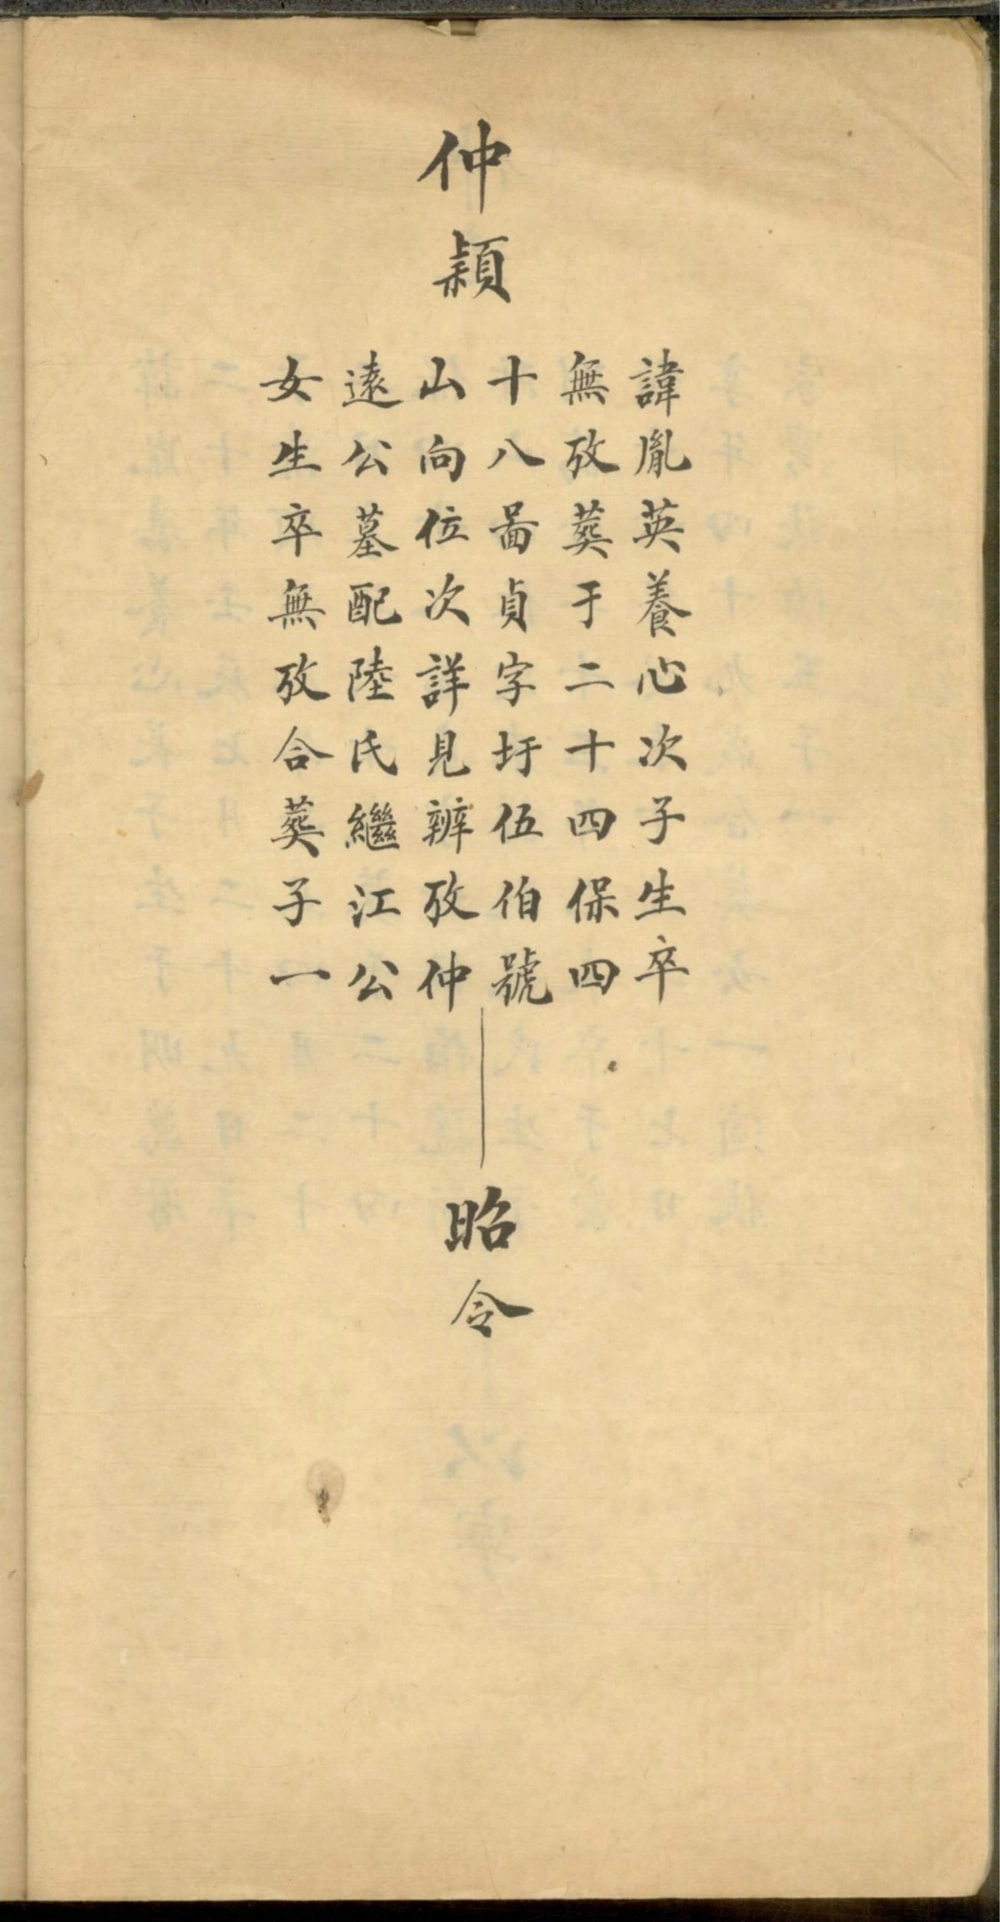 仲穎
諱胤英養心次子生卒
無攷葬于二十四保四
十八啚貞字圩伍伯號
山向位次詳見辨攷仲
遠公墓配陸氏繼江公
女生卒無攷合葬子一
昭令